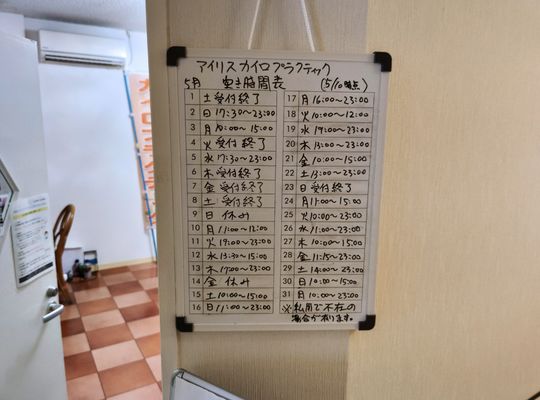 アイリスカイロプラクティック
5月 空き時間表 (5/10時点)
1 土 受付終了
2 日 17:30~23:00
3 月 10:00~15:00
4 火 受付終了
5 水 17:30~23:00
6 木 受付終了
7 金 受付終了
8 土 受付終了
9 日 休み
10 月 11:00~12:00
11 火 19:00~23:00
12 水 13:30~15:00
13 木 17:00~23:00
14 金 休み
15 土 10:00~15:00
16 日 11:00~23:00
17 月 16:00~23:00
18 火 10:00~12:00
19 水 19:00~23:00
20 木 13:00~23:00
21 金 10:00~15:00
22 土 13:00~23:00
23 日 受付終了
24 月 11:00~15:00
25 火 10:00~23:00
26 水 11:00~23:00
27 木 10:00~15:00
28 金 11:15~23:00
29 土 14:00~23:00
30 日 10:00~15:00
31 月 10:00~23:00
※私用で不在の
場合が有ります。